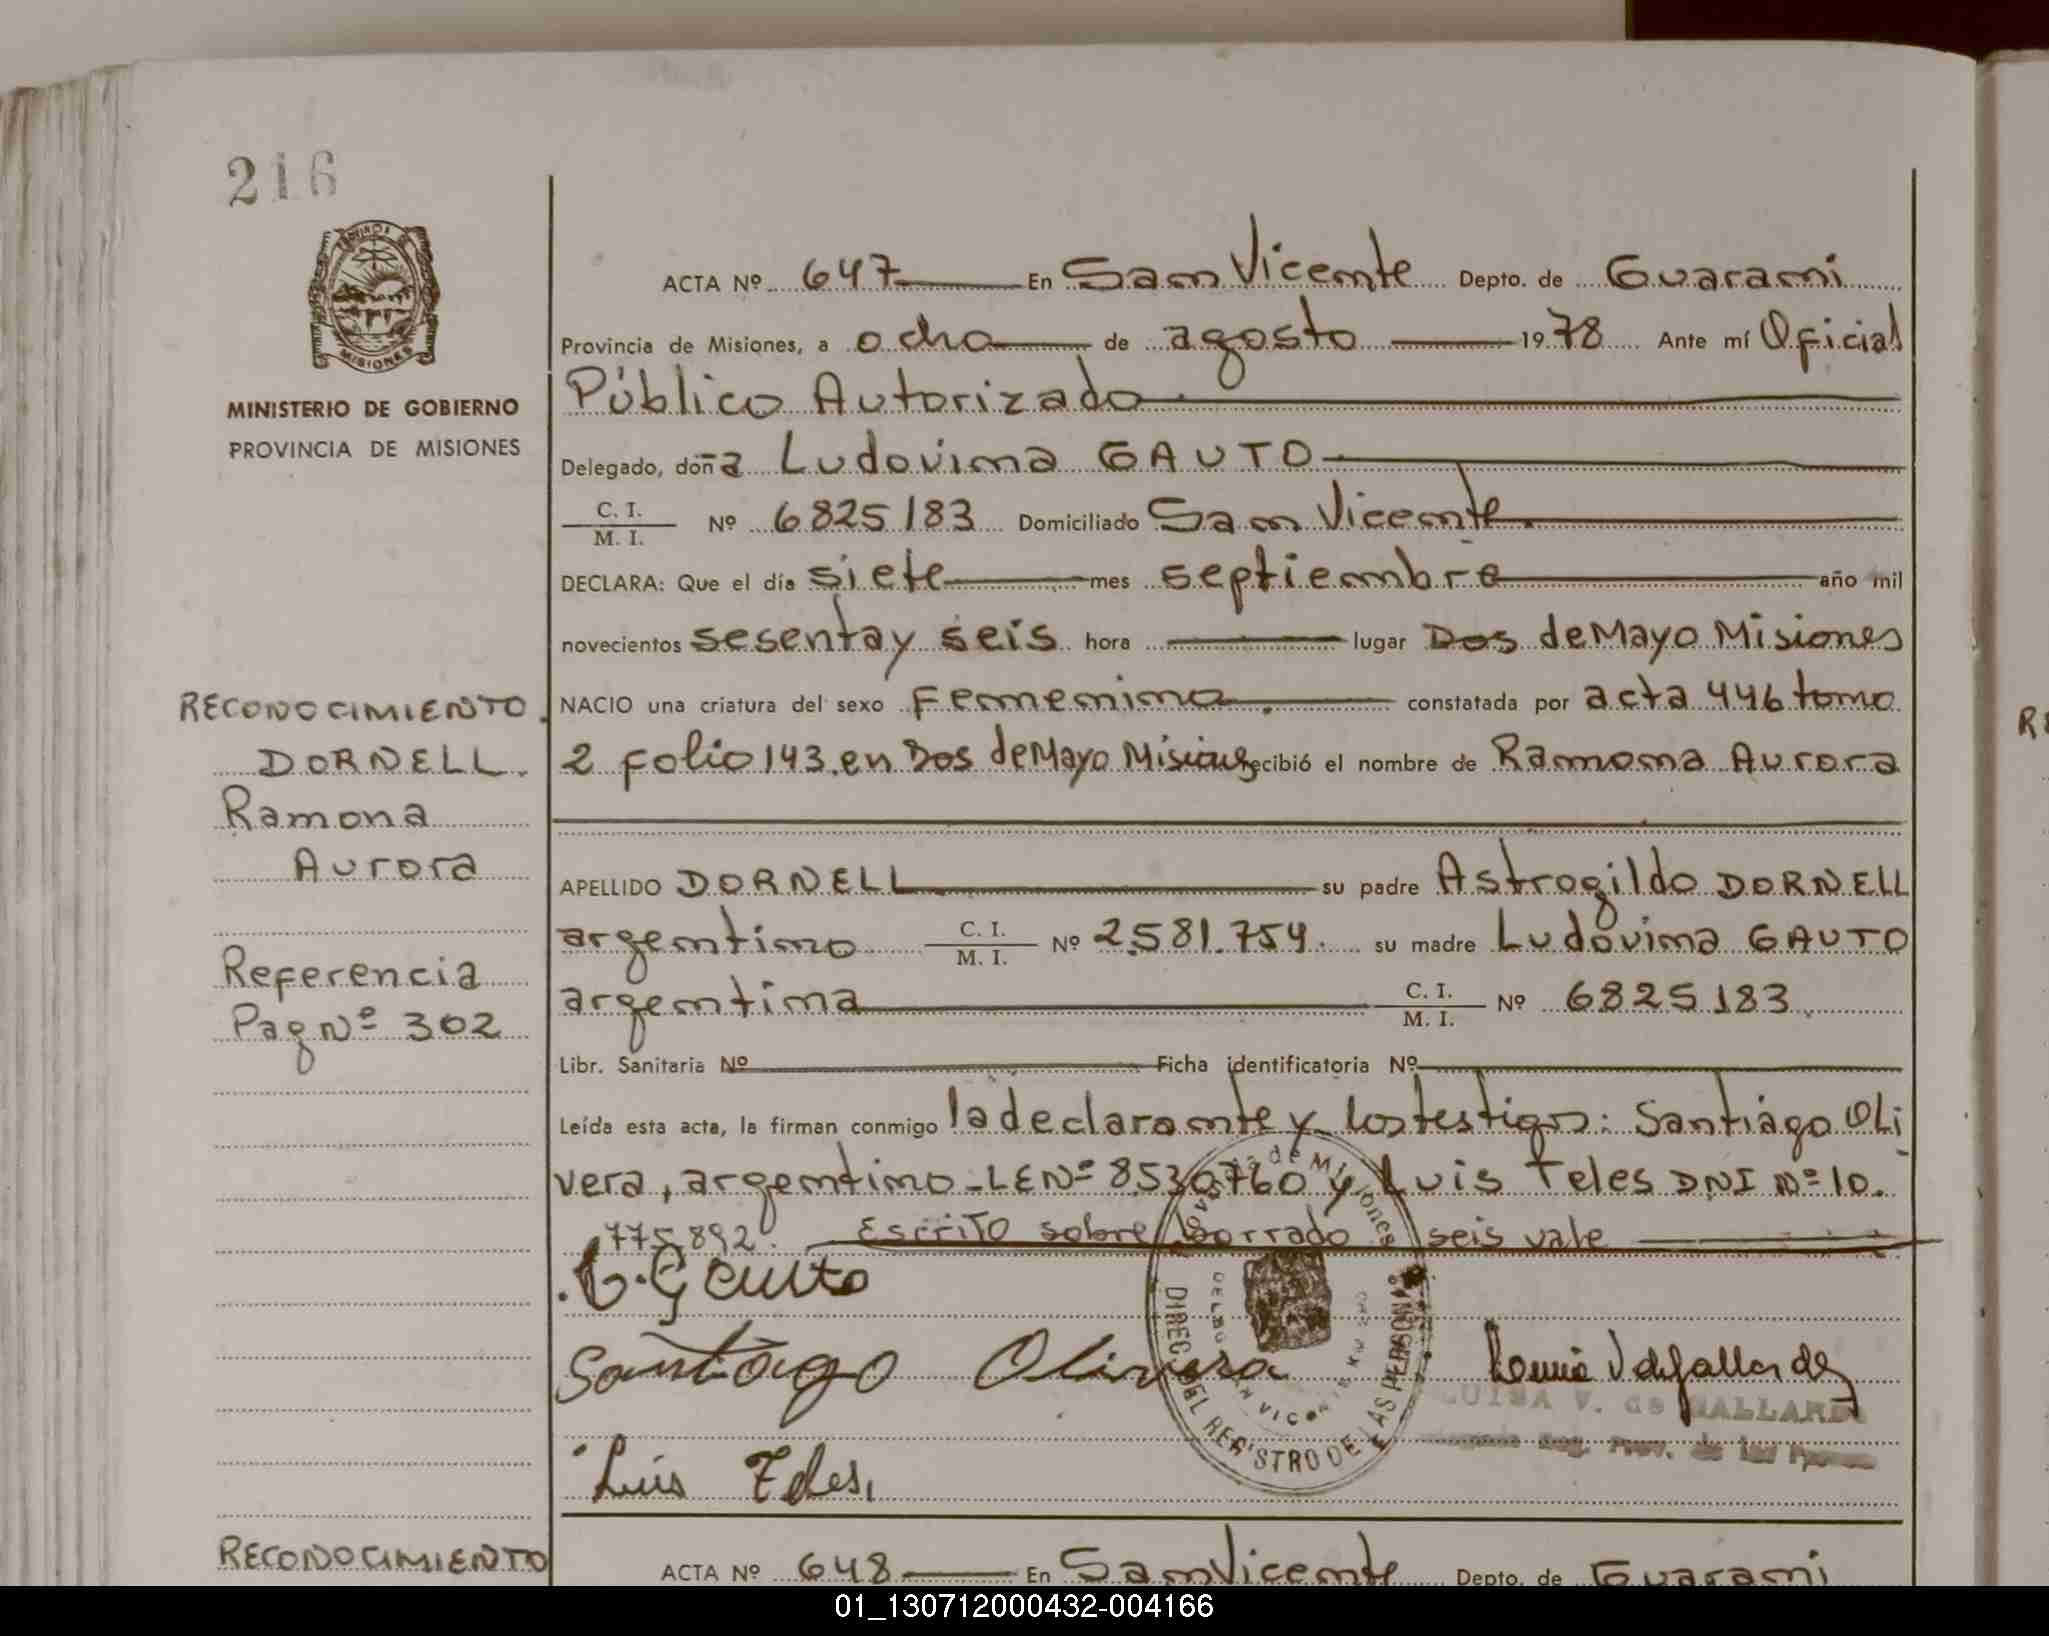 216
PROVINCIA DE
MISIONES
MINISTERIO DE GOBIERNO
PROVINCIA DE MISIONES
ACTA Nº 647 En San Vicente Depto. de Guarani
Provincia de Misiones, a ocho de agosto 1978 Ante mí Oficial
Público Autorizado
Delegado, doña Ludovina GAUTO
C. I.
M. I. Nº 6825183 Domiciliado San Vicente
DECLARA: Que el día siete mes septiembre año mil
novecientos sesenta y seis hora lugar Dos de Mayo Misiones
NACIO una criatura del sexo Femenino constatada por acta 446 tomo
2 folio 143 en Dos de Mayo Misiones recibió el nombre de Ramona Aurora
APELLIDO DORNELL su padre Astrogildo DORNELL
argentino C. I.
M. I. Nº 2.581.754. su madre Ludovina GAUTO
argentina C. I.
M. I. Nº 6825183
Libr. Sanitaria Nº Ficha identificatoria Nº
Leída esta acta, la firman conmigo la declarante y los testigos: Santiago Oli
vera, argentino - LE Nº 8.530760 y Luis Teles DNI Nº 10.
775.892. Escrito sobre borrado seis vale
RECONOCIMIENTO.
DORNELL.
Ramona
Aurora
Referencia
Pag Nº 302
L. Gauto
Santiago Olivera
Luis Teles
DIREC. DEL REGISTRO DE LAS PERSONAS
LUISA V. de GALLARDO
RECONOCIMIENTO
ACTA Nº 648 En San Vicente Depto. de Guarani
01_130712000432-004166